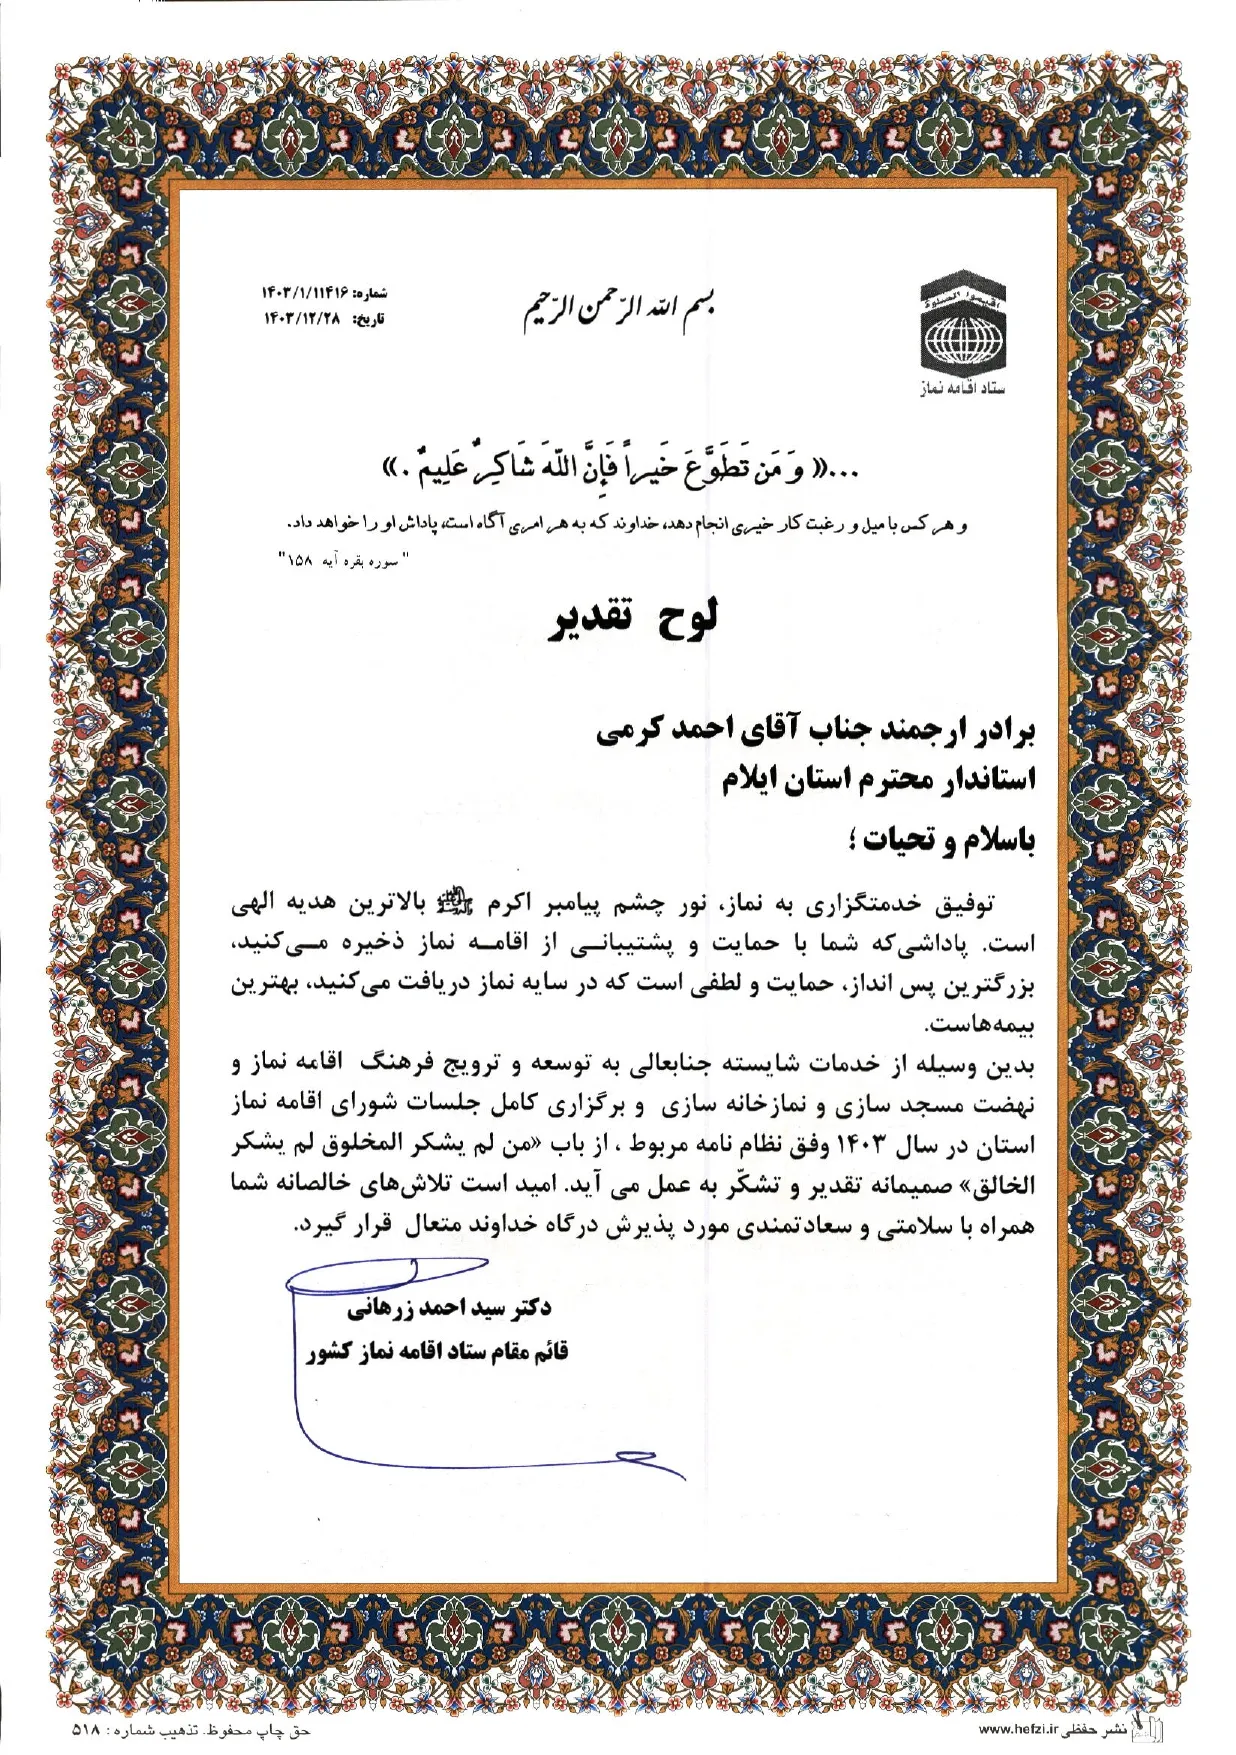 اقیموا الصلوة
ستاد اقامه نماز
بسم الله الرّحمن الرّحیم
شماره: ۱۴۰۳/۱/۱۱۴۱۶
تاریخ: ۱۴۰۳/۱۲/۲۸
...« وَ مَن تَطَوَّعَ خَیراً فَإِنَّ اللّهَ شَاکِرٌ عَلِیمٌ .»
و هر کس با میل و رغبت کار خیری انجام دهد، خداوند که به هر امری آگاه است، پاداش او را خواهد داد.
" سوره بقره آیه ۱۵۸"
لوح تقدیر
برادر ارجمند جناب آقای احمد کرمی
استاندار محترم استان ایلام
باسلام و تحیات ؛
توفیق خدمتگزاری به نماز، نور چشم پیامبر اکرم ﷺ بالاترین هدیه الهی
است. پاداشی‌که شما با حمایت و پشتیبانی از اقامه نماز ذخیره می‌کنید،
بزرگترین پس انداز، حمایت و لطفی است که در سایه نماز دریافت می‌کنید، بهترین
بیمه‌هاست.
بدین وسیله از خدمات شایسته جنابعالی به توسعه و ترویج فرهنگ اقامه نماز و
نهضت مسجد سازی و نمازخانه سازی و برگزاری کامل جلسات شورای اقامه نماز
استان در سال ۱۴۰۳ وفق نظام نامه مربوط ، از باب «من لم یشکر المخلوق لم یشکر
الخالق» صمیمانه تقدیر و تشکّر به عمل می آید. امید است تلاش‌های خالصانه شما
همراه با سلامتی و سعادتمندی مورد پذیرش درگاه خداوند متعال قرار گیرد.
دکتر سید احمد زرهانی
قائم مقام ستاد اقامه نماز کشور
نشر حفظی www.hefzi.ir
حق چاپ محفوظ. تذهیب شماره : ۵۱۸